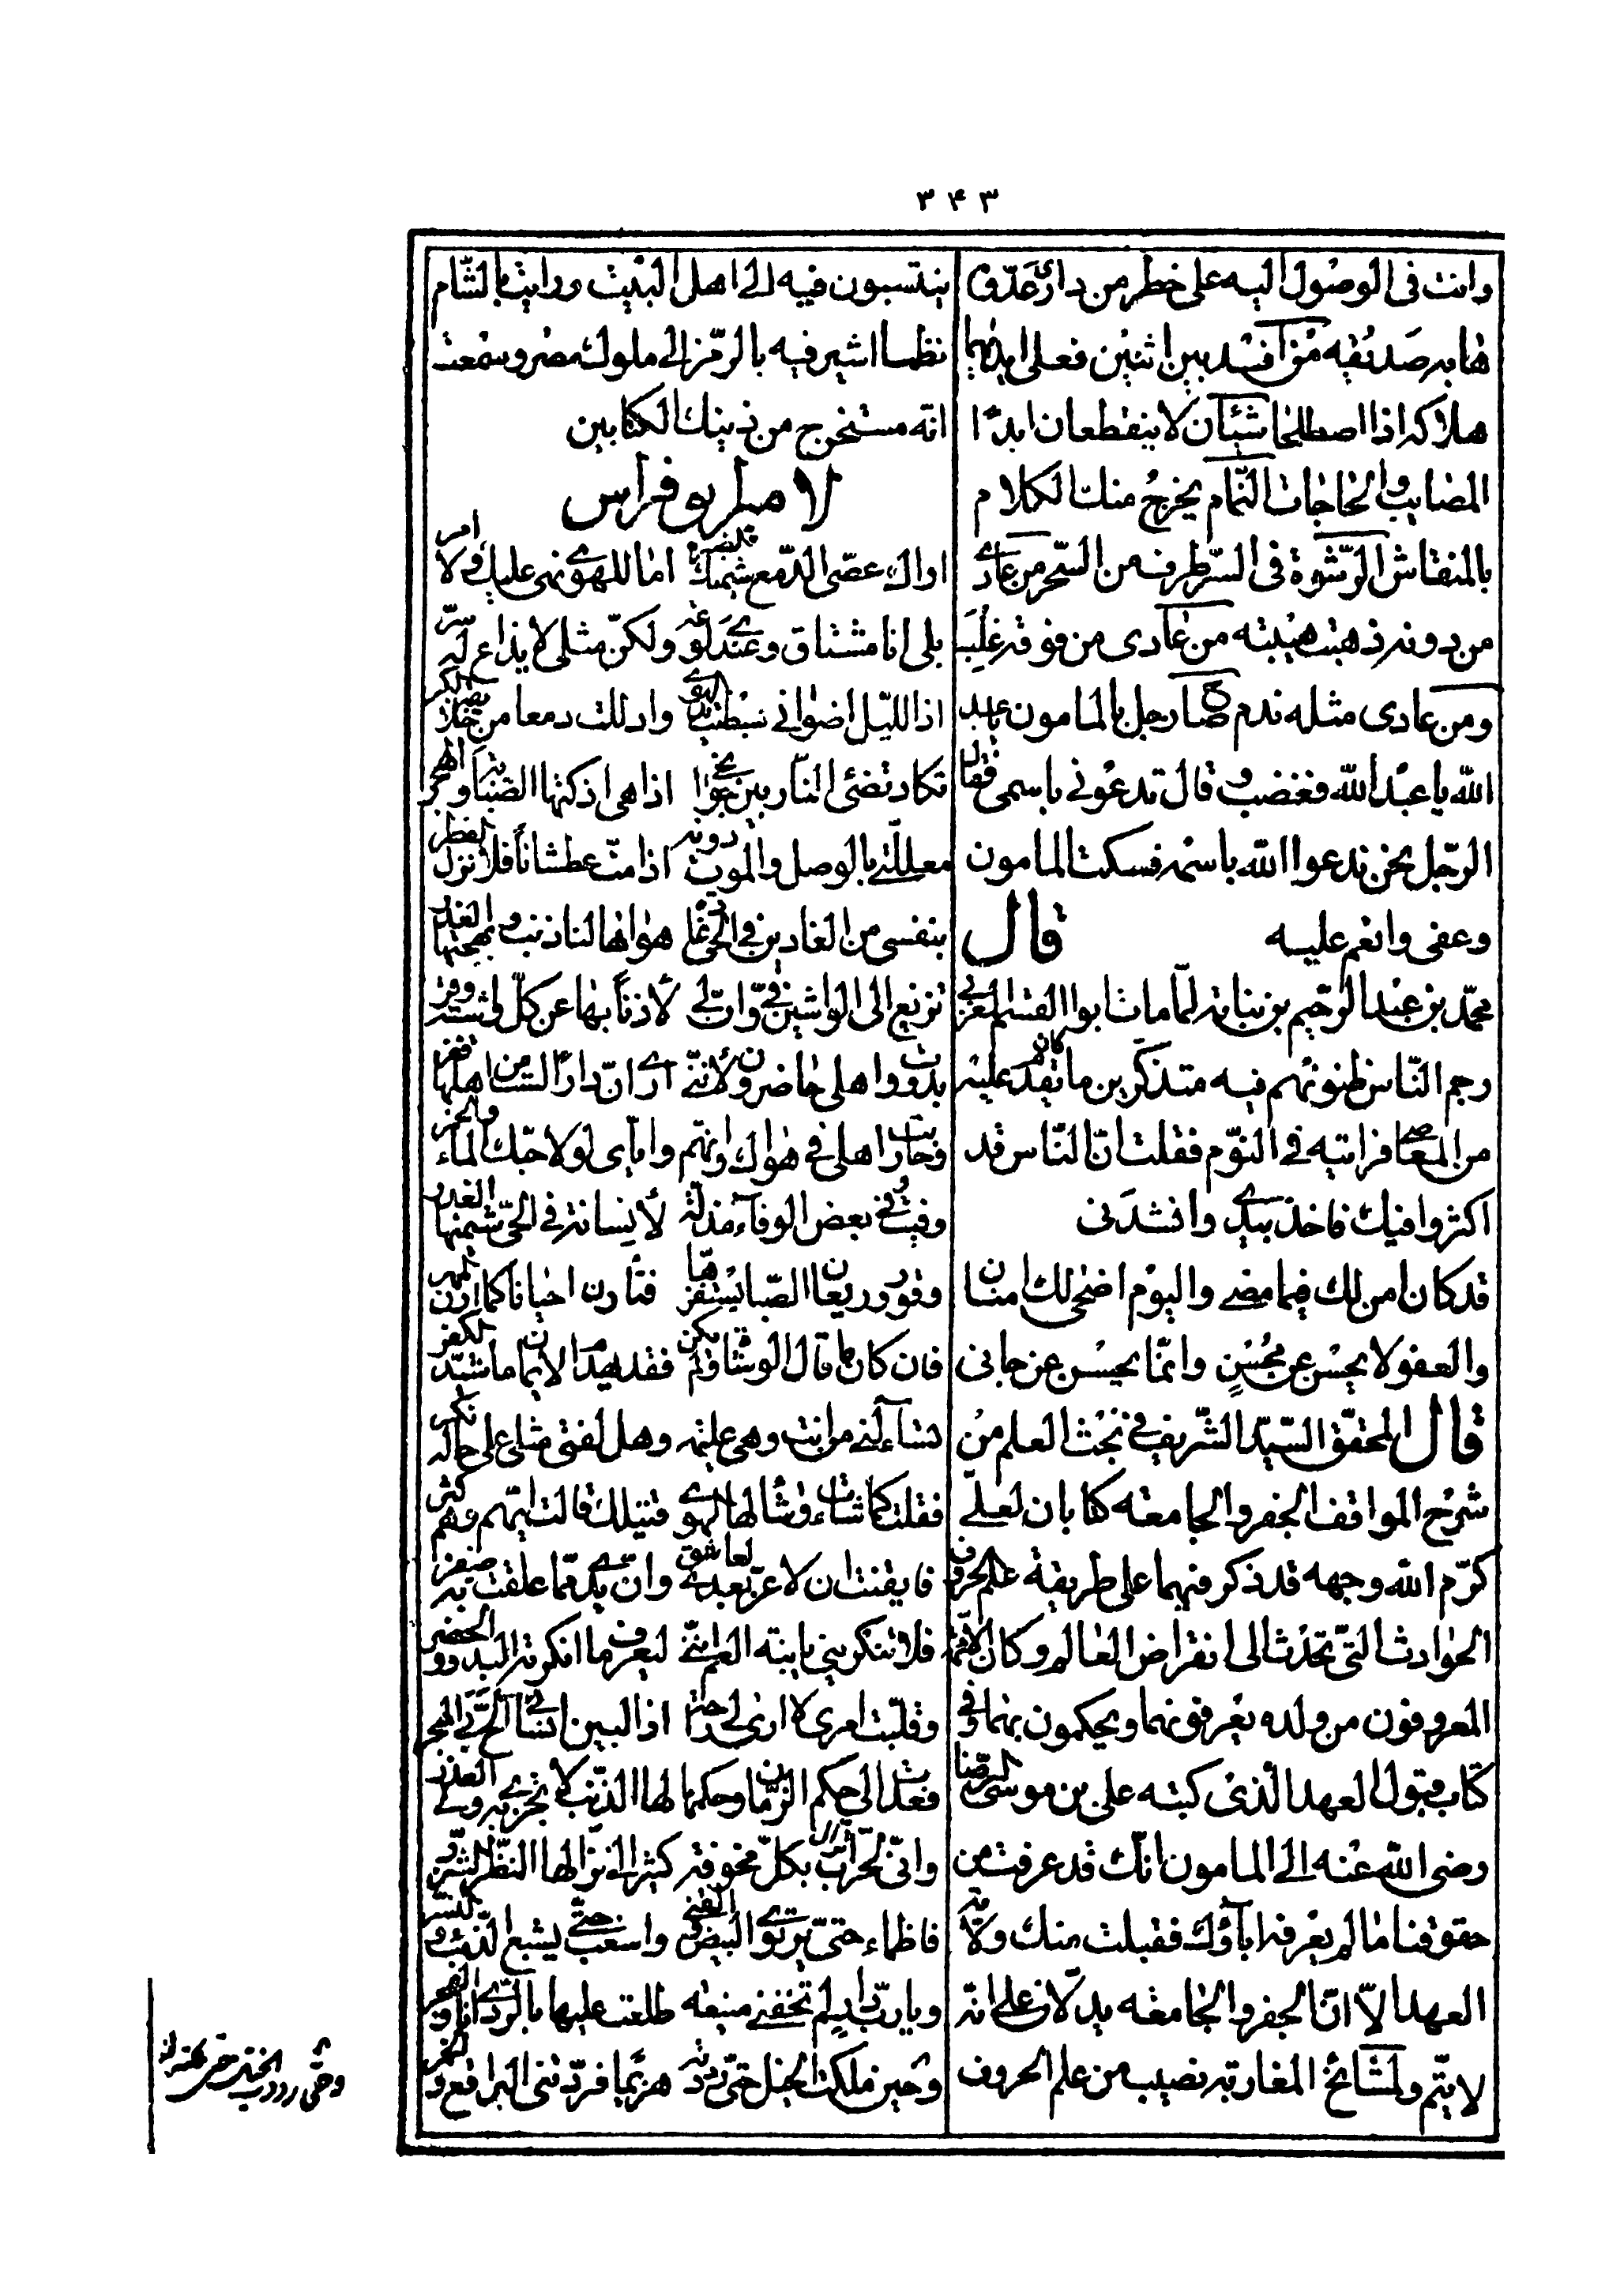 ٣٤٣
وانت فى الوصول اليه على خطر من دارى عدوّه
هابه صديقه من افسد بين اثنين فعلى ايديهما
هلاكه اذا اصطلحا شيئان لا ينقطعان ابدًا
المصايب والحاجات النّمام يخرج منك الكلام
بالمنقاش الرّشوة فى السّر طرف من السّحر من عادى
من دونه ذهبت هيبته من عادى من فوقه غلب
ومن عادى مثله ندم صاح رجل بالمامون يا عبد
الله يا عبد الله فغضب وقال تدعونى باسمى فقال
الرّجل نحن ندعوا الله باسمه فسكت المامون
وعفى وانعم عليه قال
محمّد بن عبد الرّحيم بن نباته لمّا مات ابو القسم المغربى
رجم النّاس ظنونهم فيه متذكّرين ما كان تقدم عليه
من المعاصى فرايته فى النّوم فقلت انّ النّاس قد
اكثروا فيك فاخذ بيدى وانشدنى
قد كان امن لك فيما مضى واليوم اضحى لك امنان
والعفو لا يحسن عن محسن وانّما يحسن عن جانى
قال المحقّق السيّد الشّريف فى بحث العلم من
شرح المواقف الجفر والجامعه كتابان لعلىّ
كرّم الله وجهه قد ذكر فيهما على طريقة علم الحروف
الحوادث الّتى تحدث الى انقراض العالم وكان الائمّة
المعروفون من ولده يعرفونهما ويحكمون بهما وفى
كتاب قبول العهد الّذى كتبه على بن موسى الرّضا
رضى الله عنه الى المامون انّك قد عرفت من
حقوقنا ما لم يعرفه اباؤك فقبلت منك ولاية
العهد الاّ انّ الجفر والجامعه يدلاّن على انه
لا يتّم ولمشايخ المغاربه نصيب من علم الحروف
ينتسبون فيه الى اهل البيت ورايت بالشّام
نظما اشير فيه بالرّمز الى ملوك مصر وسمعت
انّه مستخرج من ذينك الكتابين
لامير بو فراس
اراك عصىّ الدّمع شيمتك الصبر اما للهوى نهى عليك ولا امر
بلى انا مشتاق وعندى لوعة ولكنّ مثلى لا يذاع له سرّ
اذا اللّيل اضوانى بسطت يد الهوى واذللت دمعا من خلايقه الكبر
تكاد تضئ النّار بين جوانحى اذا هى اذكتها الصّبابة والفكر
معلّلتى بالوصل والموت دونه اذا متّ عطشاناً فلا نزل القطر
بنفسى من الغادين فى الحىّ غادة هواها لنا ذنب وبهجتها العذر
تزيغ الى الواشين فىّ وانّ لى لأذناً بها عن كلّ واشية وقر
بدوت واهلى حاضرون لأنّنى ارى انّ دارًا لست من اهلها قفر
وحاربت اهلى فى هواك وانّهم وايّاى لولا حبّك الماء والخمر
وفيت وفى بعض الوفاء مذلّة لأنسانة فى الحىّ شيمتها الغدر
وقور وريعان الصّبا يستفزها فتأرن احيانا كما ارن المهر
فان كان ما قال الوشاة ولم يكن فقد يهدم الايمان ما شيّد الكفر
تسآءلنى من انت وهى عليمة وهل لفتى مثلى على حاله نكر
فقلت كما شاءت وشاء لها الهوى قتيلك قالت ايّهم وهم كثر
فايقنت ان لا عزّ بعدى لعاشق وانّ يدى ممّا علقت به صفر
فلا تنكرينى يا ابنة العم انّنى ليعرف ما انكرته البدو والحضر
وقلّبت امرى لا ارى لى راحة اذا البين انسانى الحّ بى الهجر
فعدت الى حكم الزّمان وحكمها لها الذّنب لا تجزى به ولى العذر
وانّى لجرّار بكلّ مخوفة كثير الى نزّالها النظر الشّزر
فاظماء حتّى ترتوى البيض والقنى واسغب حتّى يشبع الذّئب والنّسر
ويا ربّ دار لم تخفنى منيعه طلعت عليها بالرّدى انا والفجر
وحىّ رددت الخيل حتى ملكته
وحين ملكت الخيل حتّى رددته هزيما فردّتنى البراقع والخمر